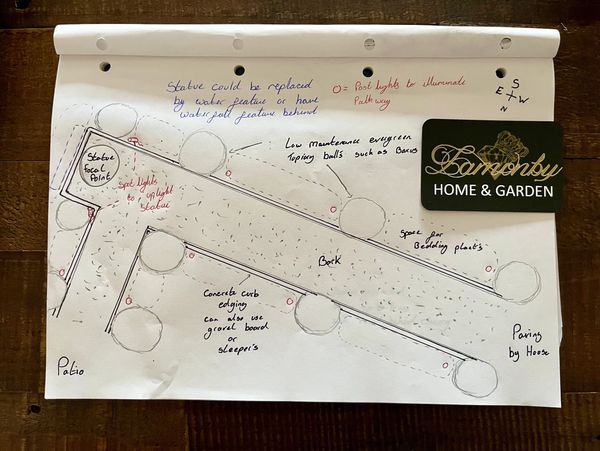 Statue could be replaced
by water feature or have
waterfall feature behind
O = Post lights to illuminate
Pathway
S
E W
N
Lamonby
HOME & GARDEN
Low maintenance evergreen
Topiary balls such as Boxus
Statue
Focal
Point
Spot lights
to uplight
Statue
Space for
Bedding plants
Bark
Concrete curb
edging
can also use
gravel board
or
sleeper's
Paving
by House
Patio